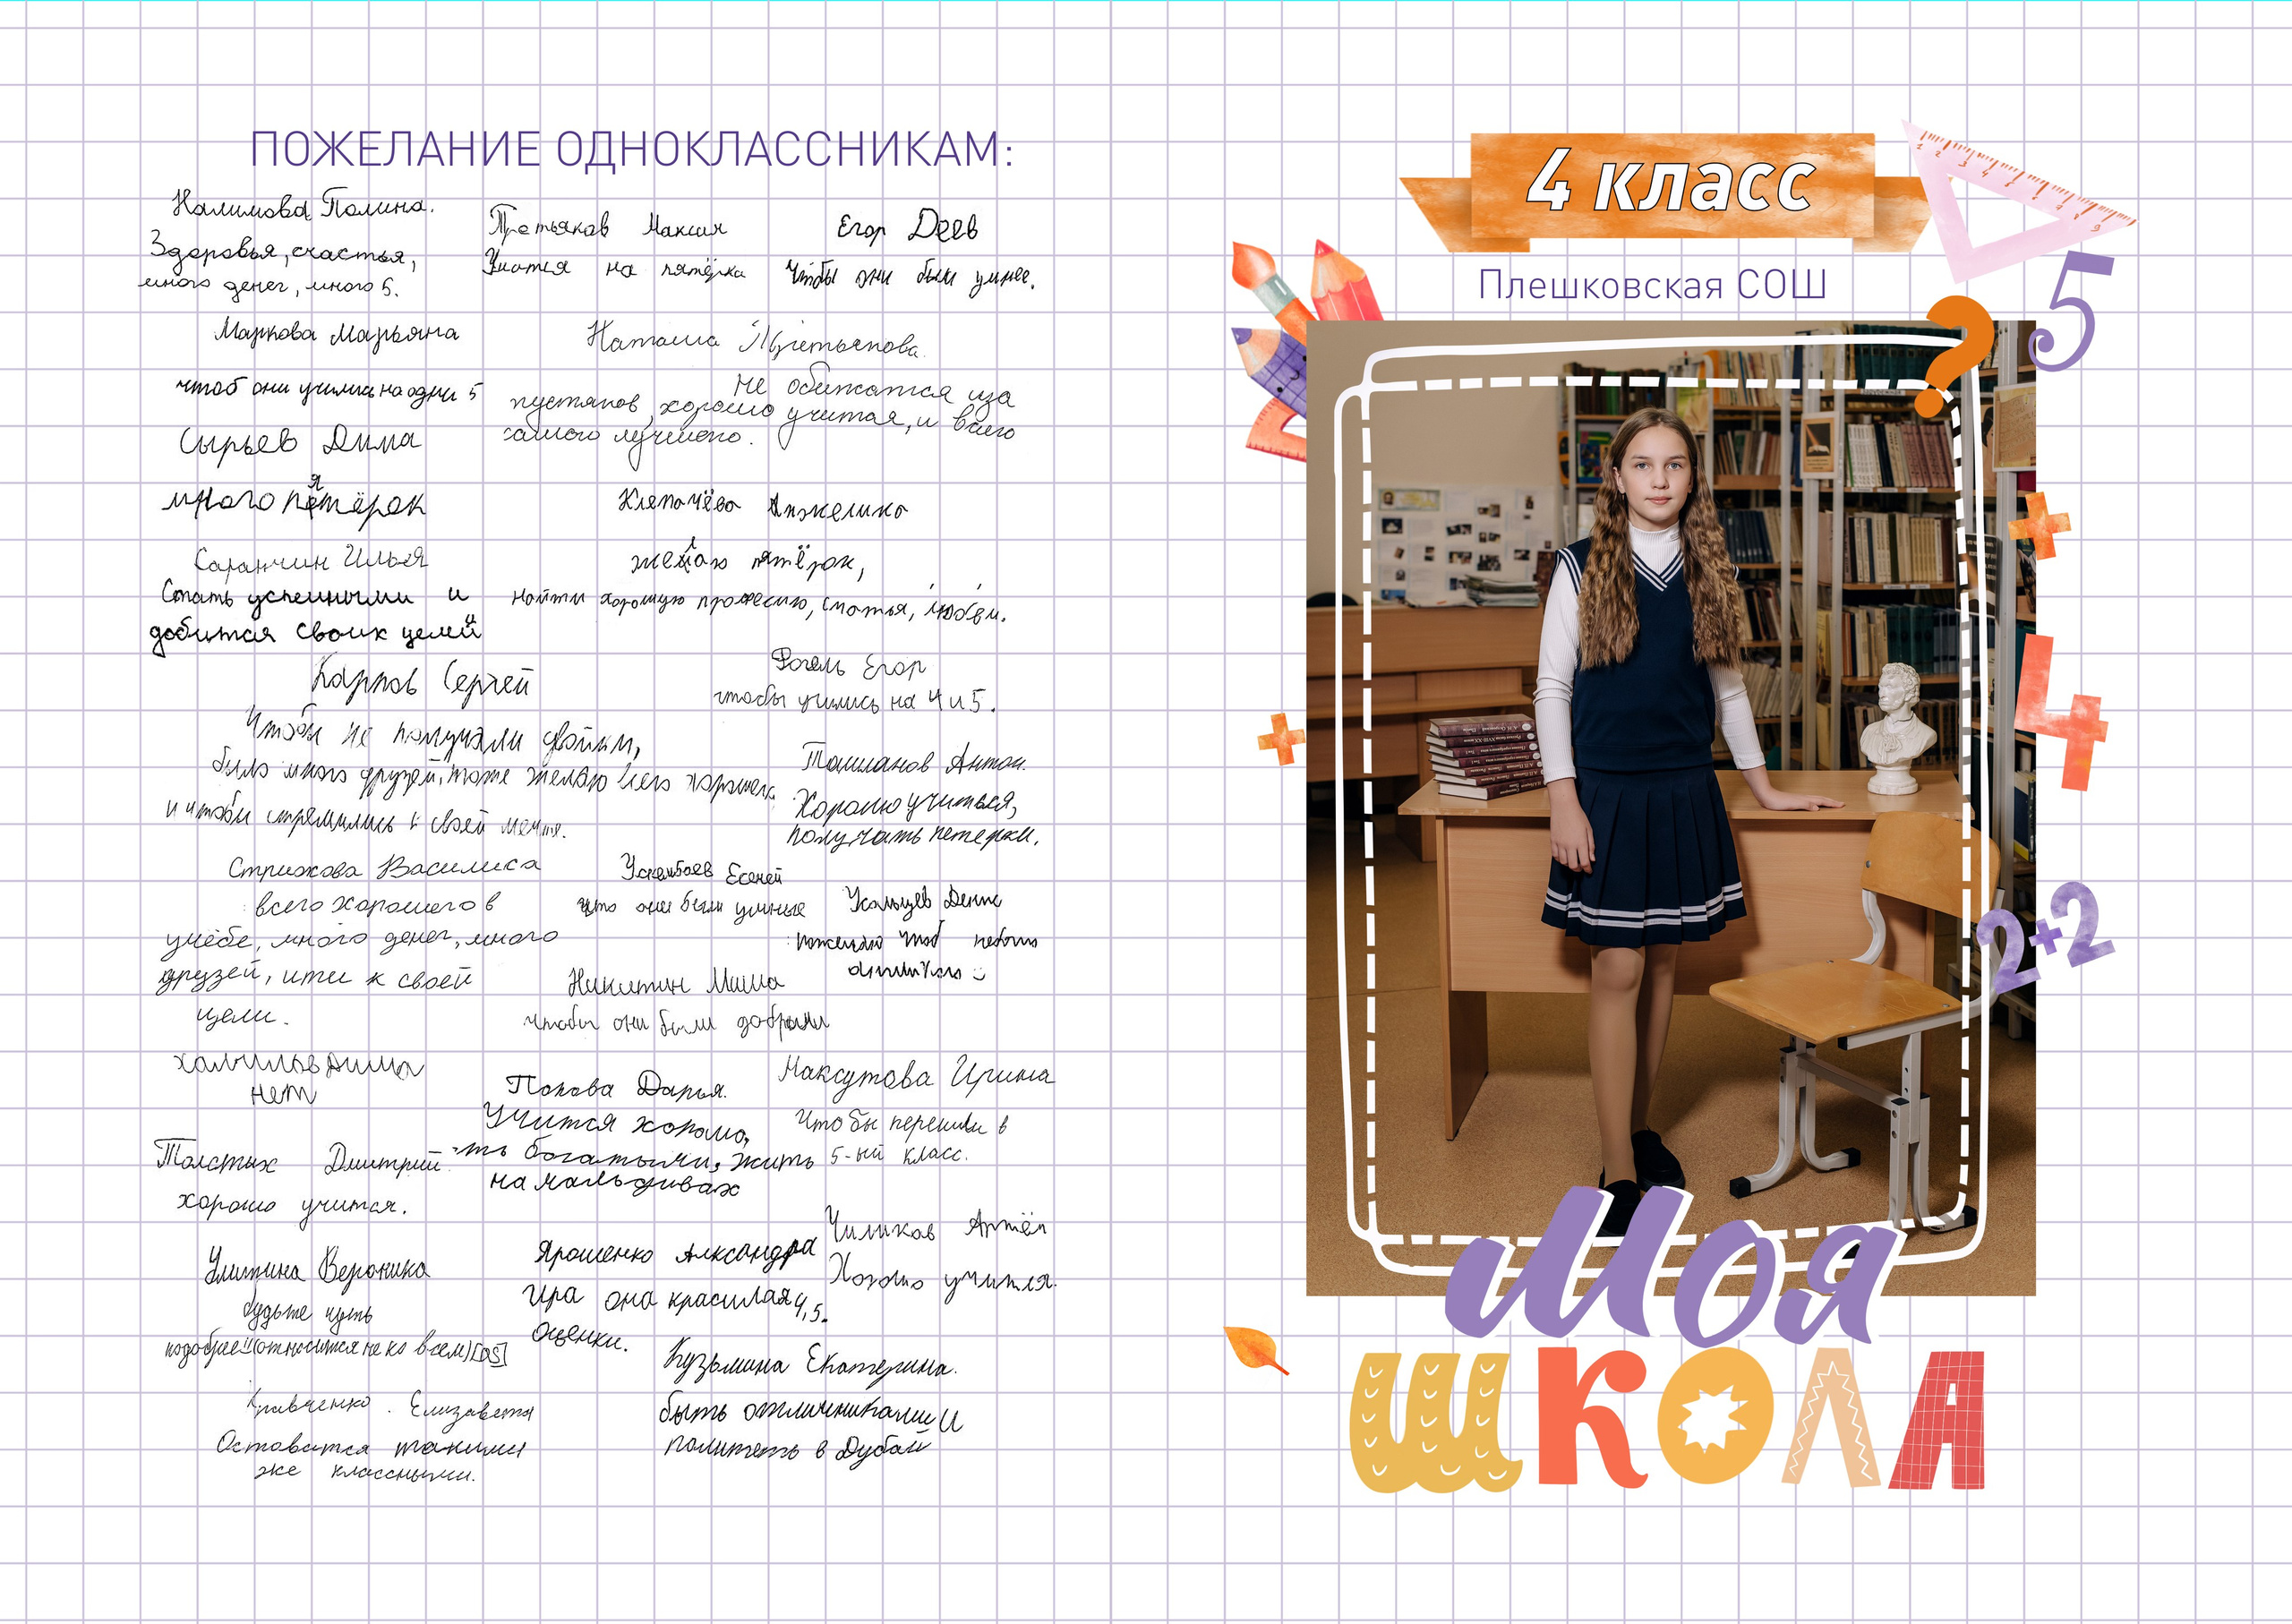 ПОЖЕЛАНИЕ ОДНОКЛАССНИКАМ:
Налимова Полина.
Здоровья, счастья,
много денег, много 5.
Третьяков Максим
Учится на пятёрка
Егор Деев
Чтобы они были умнее.
Маркова Марьяна
чтоб они учились на одни 5
Наташа Третьякова.
Не обижатся иза
пустяков, хорошо учится, и всего
самого лучшего.
Сырьев Дима
много пятёрок
Клепачёва Анжелика
желаю пятёрок,
найти хорошую професию, счастья, любви.
Саранчин Илья
Стать успешными и
добится своих целей
Карпов Сергей
Чтобы не получали двойки,
было много друзей, тоже желаю всего хорошего
и чтобы стремились к своей мечте.
Фогель Егор
чтобы учились на 4 и 5.
Ташланов Антон.
Хорошо учиться,
получать петерки.
Стрижова Василиса
всего хорошего в
учёбе, много денег, много
друзей, ити к своей
цели.
Усенбаев Есеней
что они были умные
Усольцев Денис
Никитин Миша
чтобы они были добрыми
Халилов Дима
нет
Попова Дарья.
Учится хорошо,
-ть богатыми, жить
на мальдивах
Максутова Ирина
Чтобы перешли в
5-ый класс.
Толстых Дмитрий
хорошо учится.
Чиликов Артём
Хорошо учится.
Улитина Вероника
будьте чуть
подобрее!!(относится не ко всем)
Ярошенко Алксандра
Ира она красилая 4,5.
Оценки.
Кузьмина Екатерина.
быть отличниками И
политеть в Дубай
Кравченко. Елизавета
Оставатся такими
же классными.
4 класс
Плешковская СОШ
5
?
4
2+2
Моя
ШКОЛА